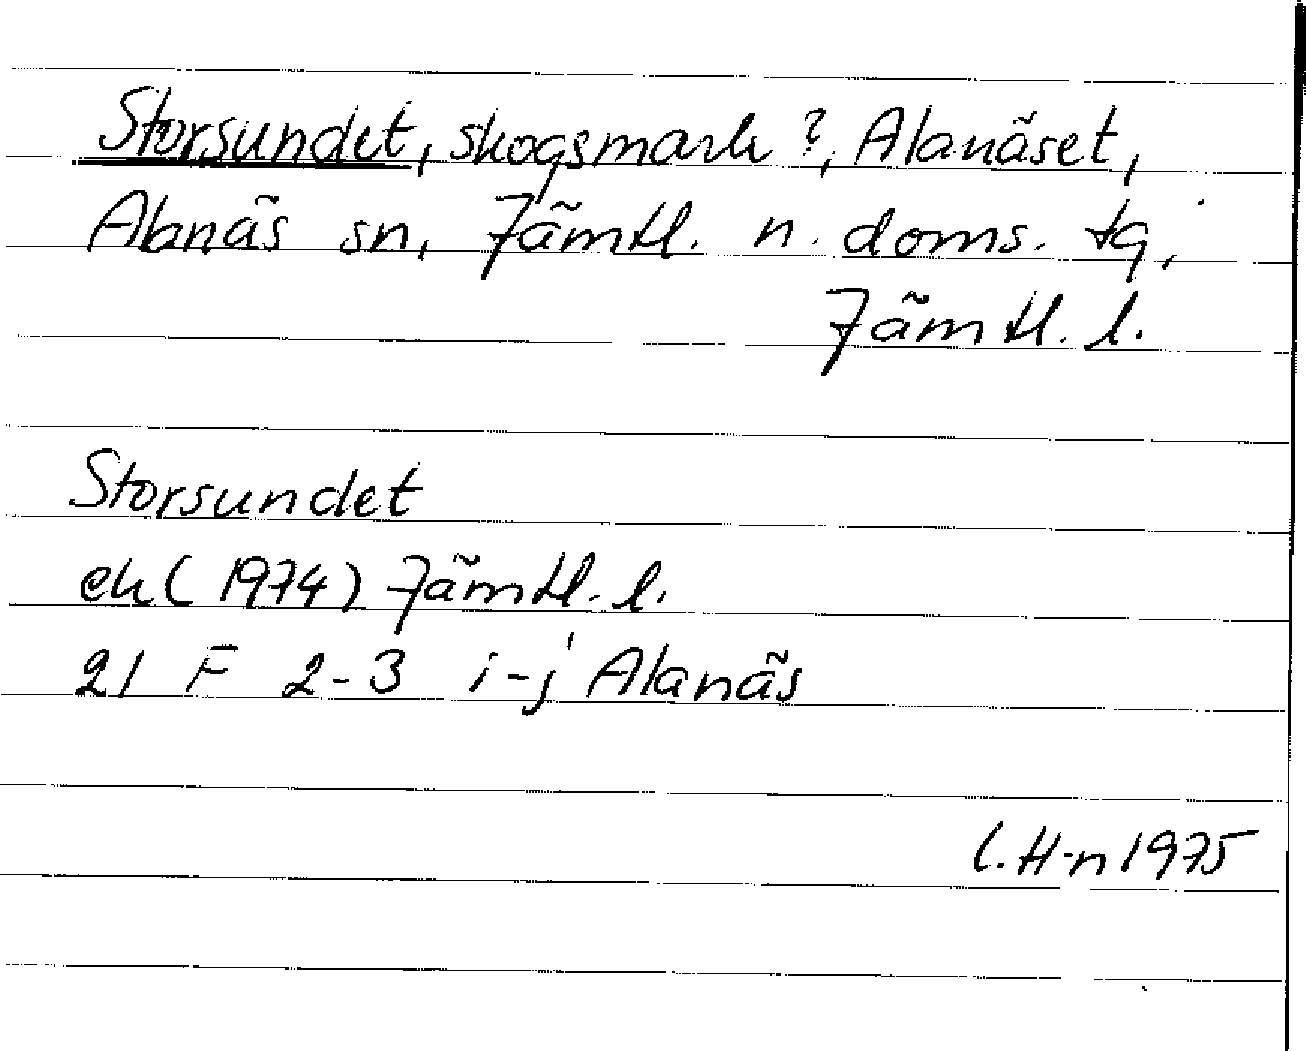 Storsundet, skogsmark?, Alanäset,
Alanäs sn, Jämtl. n. doms. tg,
Jämtl. l.
Storsundet
ek (1974) Jämtl. l.
21 F 2-3 i-j Alanäs
C. H-n 1975